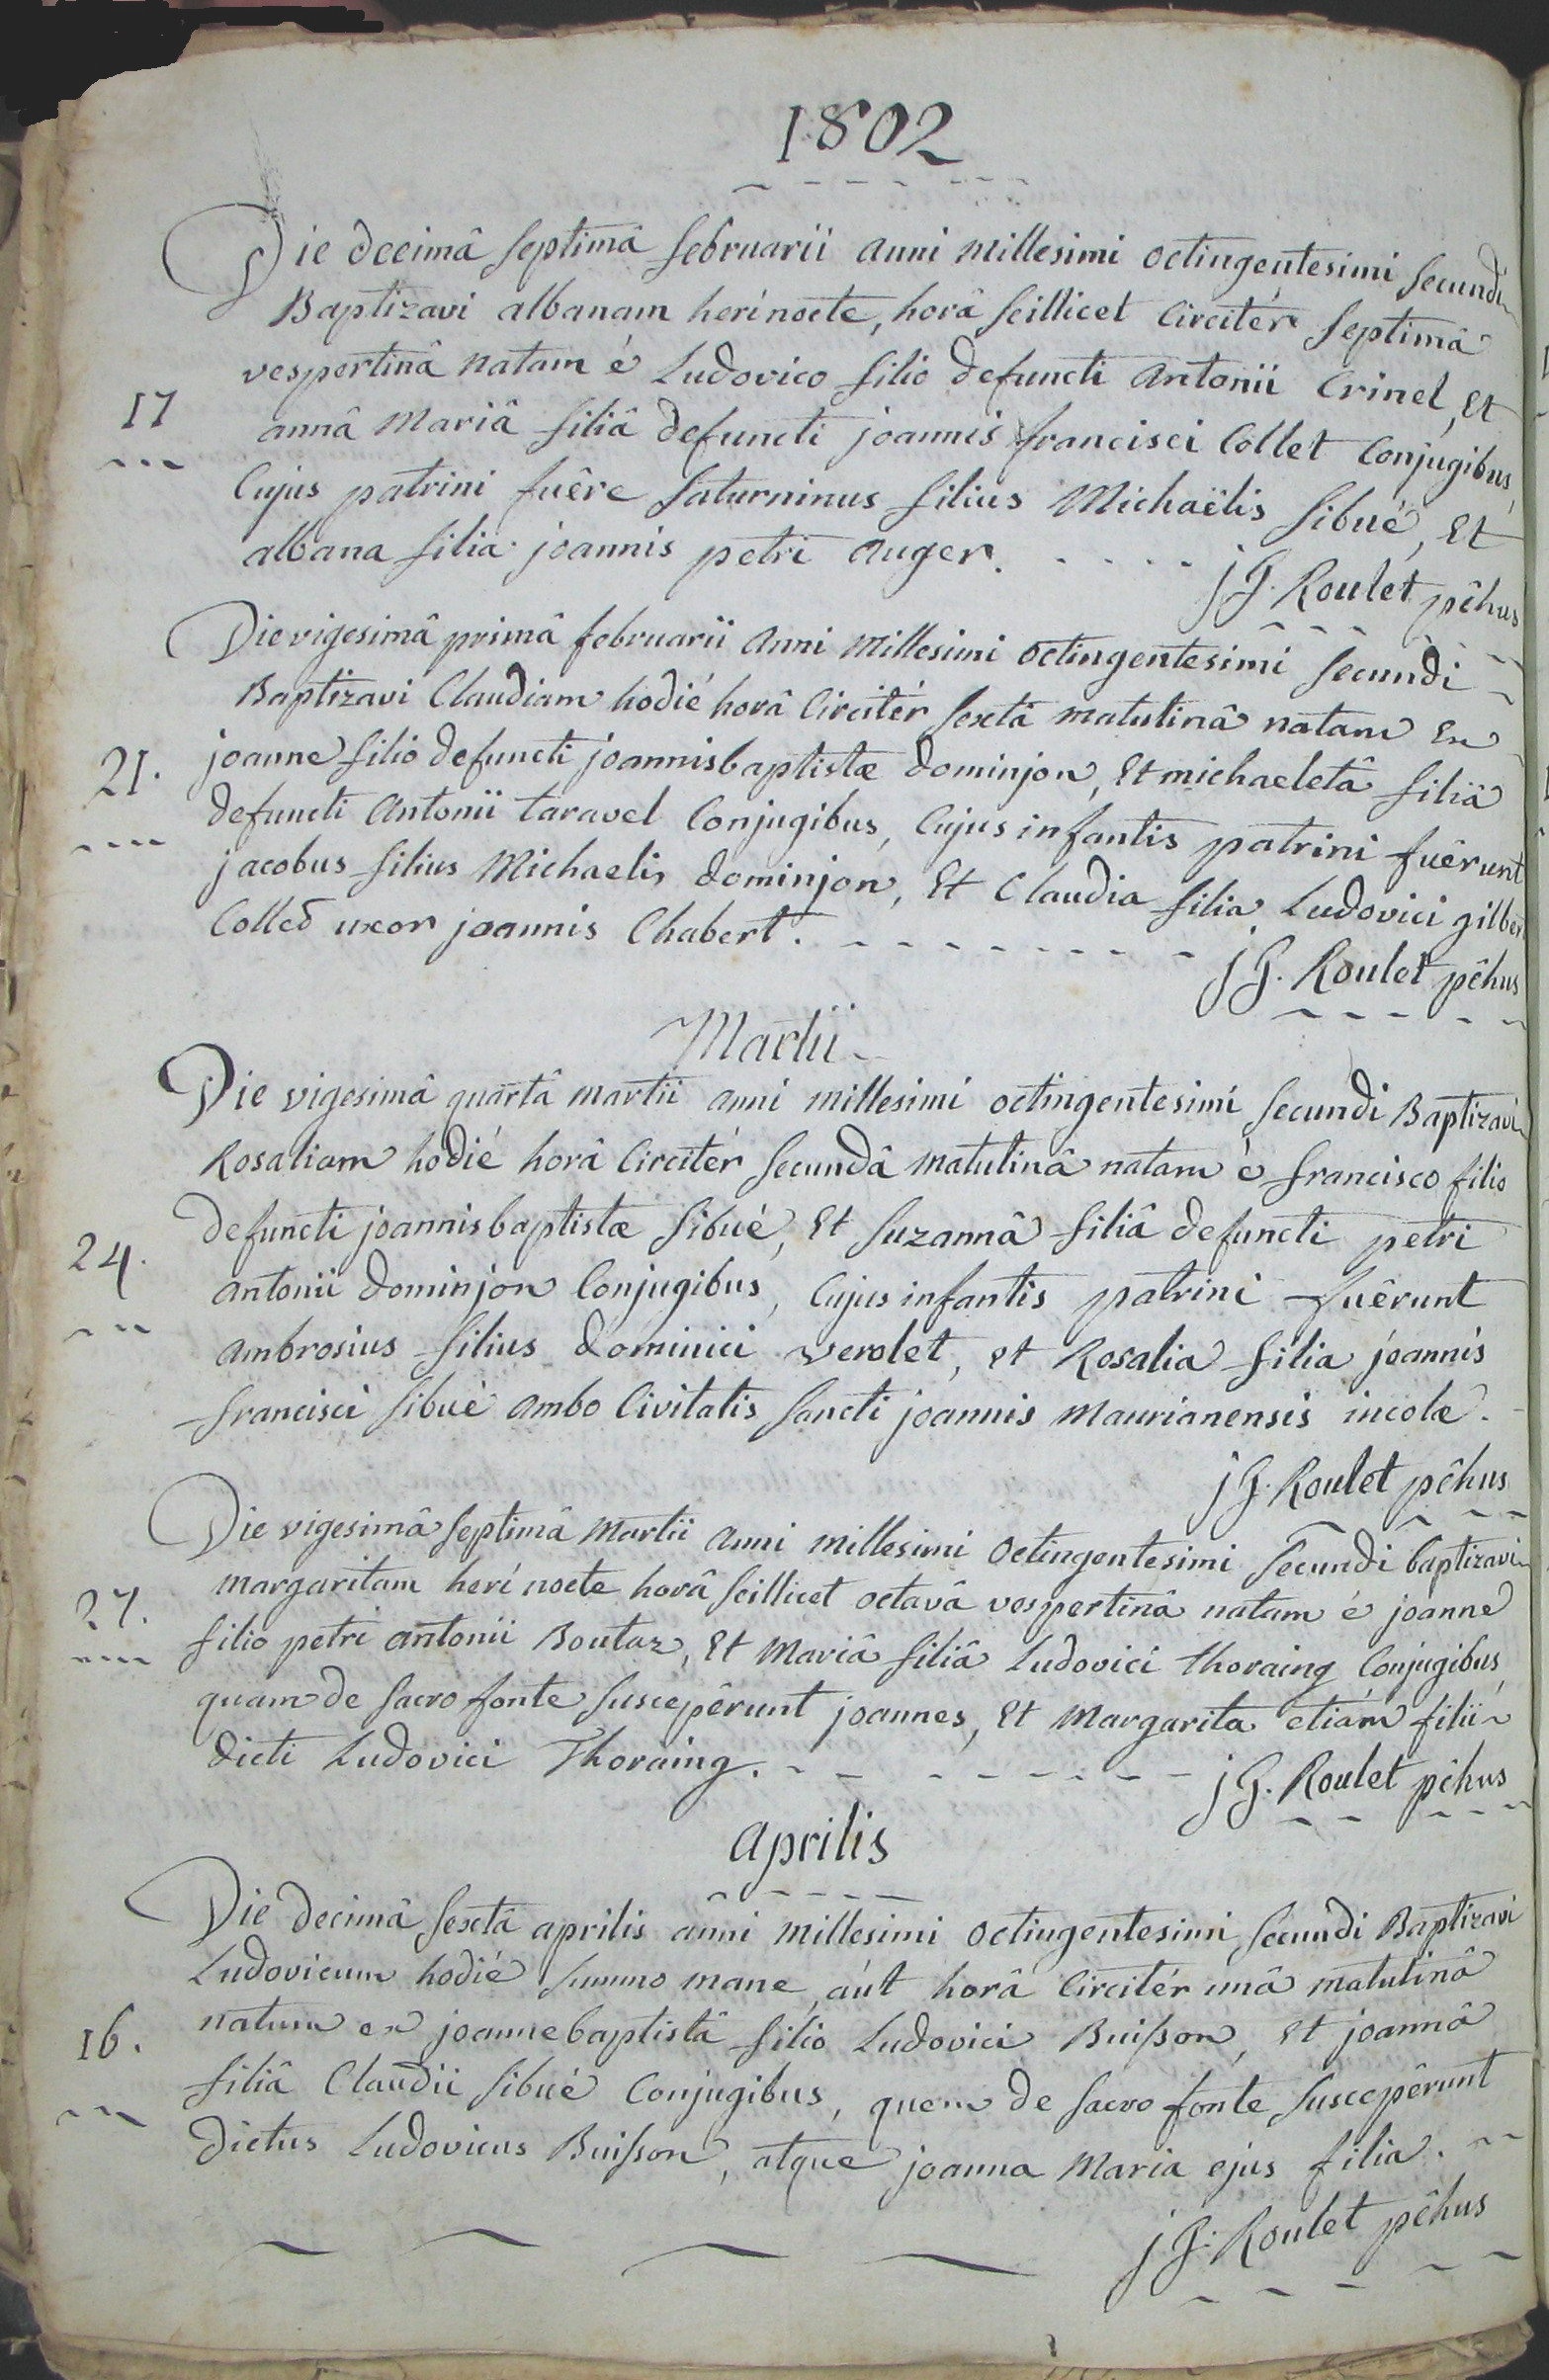 1802
Die decimâ septimâ februarii anni millesimi octingentesimi secundi
Baptizavi albanam heri nocte, horâ scillicet circitér septimâ
vespertinâ natam é Ludovico filio defuncti antonii Crinel, Et
17
annâ Mariâ filiâ defuncti joannis francisci Collet Conjugibus,
Cujus patrini fuêre Saturninus filius Michaëlis Sibué, Et
albana filia joannis petri auger.
j G. Roulet pêhus
Die vigesimâ primâ februarii anni millesimi octingentesimi secundi
Baptizavi Claudiam hodié horâ circitér sextâ matutinâ natam Ex
21.
joanne filio defuncti joannisbaptistæ dominjon, Et michaeletâ filiâ
defuncti antonii taravel Conjugibus, Cujus infantis patrini fuêrunt
jacobus filius Michaelis dominjon, Et Claudia filia Ludovici gilbert
Colled uxor joannis Chabert.
j G. Roulet pêhus
Martii
Die vigesimâ quartâ martii anni millesimi octingentesimi secundi Baptizavi
Rosaliam hodié horâ circitér secundâ matutinâ natam é francisco filio
defuncti joannisbaptistæ Sibué, Et Suzannâ filiâ defuncti petri
24.
antonii dominjon Conjugibus, Cujus infantis patrini fuêrunt
ambrosius filius dominici verolet, et Rosalia filia joannis
francisci Sibué ambo Civitatis Sancti joannis Maurianensis incolæ.
j G. Roulet pêhus
Die vigesimâ septimâ Martii anni millesimi octingentesimi secundi baptizavi
27.
margaritam heri nocte horâ scillicet octavâ vespertinâ natam é joanne
filio petri antonii Boutaz, Et Mariâ filiâ Ludovici Thoraing Conjugibus,
quam de sacro fonte suscepêrunt joannes, Et Margarita etiám filii
dicti Ludovici Thoraing.
j G. Roulet pêhus
aprilis
Die decimâ sextâ aprilis anni millesimi octingentesimi, secundi Baptizavi
Ludovicum hodié summo mane, aút horâ circitér unâ matutinâ
16.
natum ex joannebaptistâ filio Ludovici Buisson, Et joannâ
filiâ Claudii Sibué Conjugibus, quem de sacro fonte suscepêrunt
dictus Ludovicus Buisson, atque joanna Maria ejus filia.
j. G. Roulet pêhus